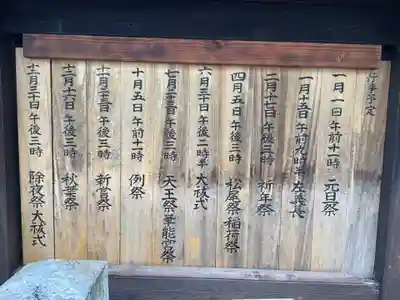 行事予定
一月一日 午前十時 元旦祭
一月十五日 午前九時半 左義長
二月十七日 午後三時 祈年祭
四月五日 午後三時 松尾祭 稲荷祭
六月三十日 午後二時半 大祓式
七月二十三日 午後三時 天王祭
十月五日 午前十一時 例祭
十一月二十三日 午後三時 新嘗祭
十二月十六日 午後三時 秋葉祭
十二月三十日 午後三時 除夜祭 大祓式